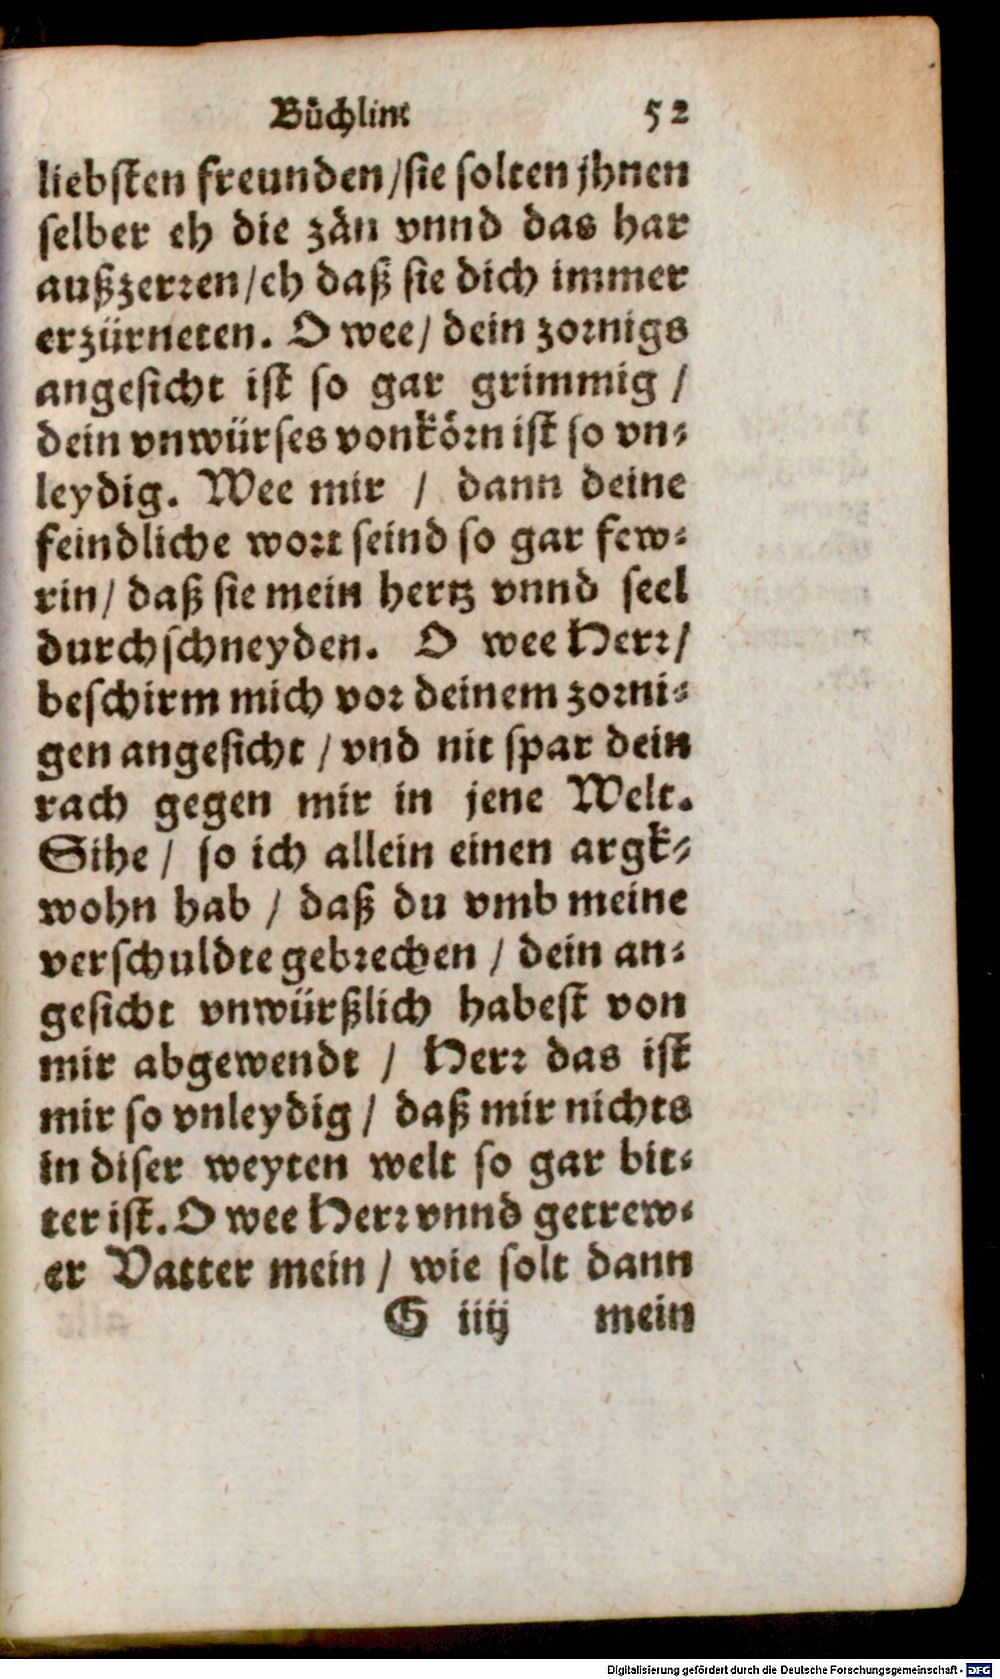 Büchlins 52
liebsten freunden/sie solten jhnen
selber eh die zän vnnd das har
außzerren/eh daß sie dich immer
erzürneten. O wee/ dein zornigs
angesicht ist so gar grimmig /
dein vnwürses vonkörn ist so vn-
leydig. Wee mir / dann deine
feindliche wort seind so gar few-
rin/ daß sie mein hertz vnnd seel
durchschneyden. O wee Herr/
beschirm mich vor deinem zorni-
gen angesicht / vnd nit spar dein
rach gegen mir in jene Welt.
Sihe / so ich allein einen argk-
wohn hab / daß du vmb meine
verschuldte gebrechen / dein an-
gesicht vnwürßlich habest von
mir abgewendt / Herr das ist
mir so vnleydig / daß mir nichts
in diser weyten welt so gar bit-
ter ist. O wee Herr vnnd getrew-
er Vatter mein / wie solt dann
G iiij mein
Digitalisierung gefördert durch die Deutsche Forschungsgemeinschaft - DFG